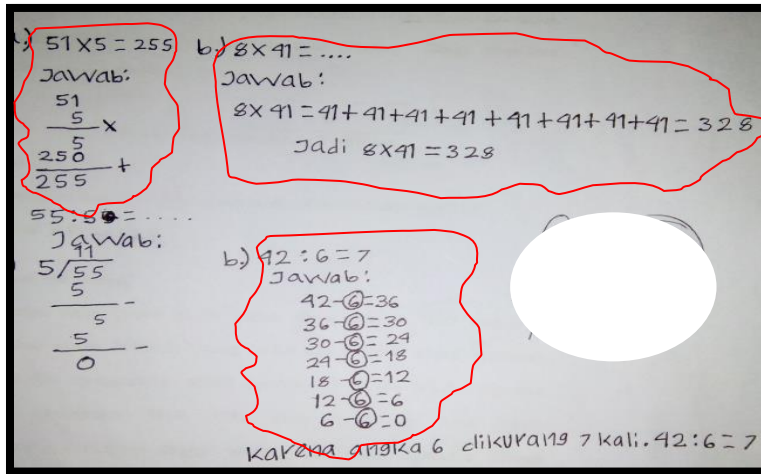 ) 51 × 5 = 255
Jawab:
51
5 ×
5
250 +
255
b.) 8 × 41 = ....
Jawab:
8 × 41 = 41 + 41 + 41 + 41 + 41 + 41 + 41 + 41 = 328
Jadi 8 × 41 = 328
55 : 5 = ....
Jawab:
11
5/55
5 -
5
5 -
0
b.) 42 : 6 = 7
Jawab:
42 - 6 = 36
36 - 6 = 30
30 - 6 = 24
24 - 6 = 18
18 - 6 = 12
12 - 6 = 6
6 - 6 = 0
karena angka 6 dikurang 7 kali. 42 : 6 = 7